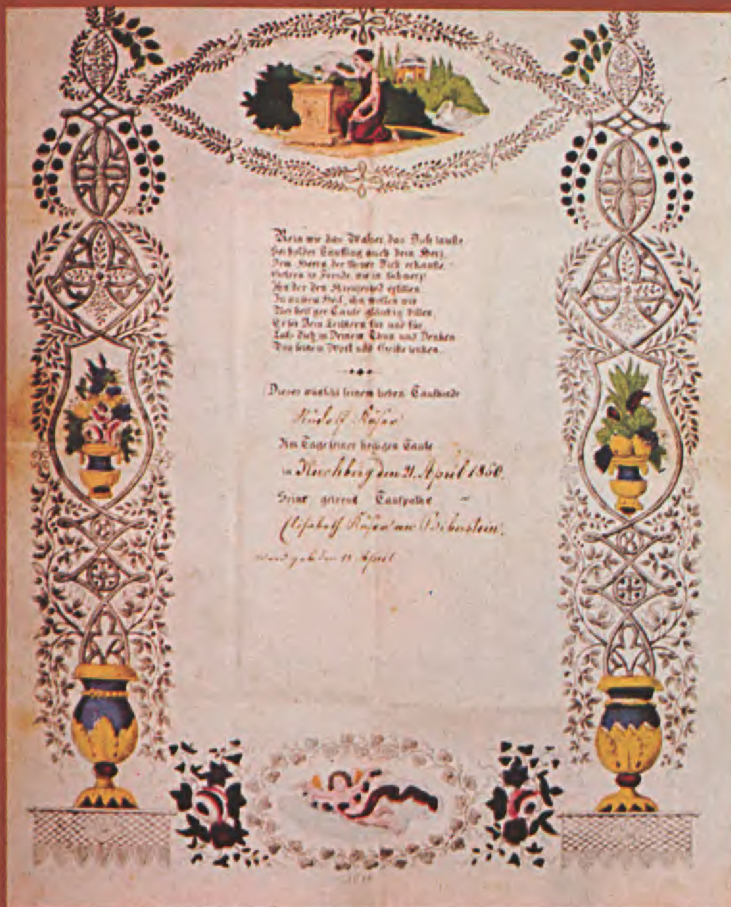 Rein wie das Waßer, das Dich taufte
Sei holder Täufling auch dein Herz,
Dem Herrn der theuer Dich erkaufte,
Getreu in Freude, wie in Schmerz!
Ihn der den Kreuzestod erlitten
Zu unserm Heil, ihn wollen wir
Bei heil'ger Taufe gläubig bitten,
Er sei Dein Leitstern für und für
Laß dich in Deinem Thun und Denken
Von seinem Wort und Geiste lenken.
Dieses wünscht seinem lieben Taufkinde
Rudolf
Am Tage seiner heiligen Taufe
in Kirchberg den 21. April 1850.
Seine getreue Taufpathe
Elisabeth von Biberstein.
Ward geb. den 11 April